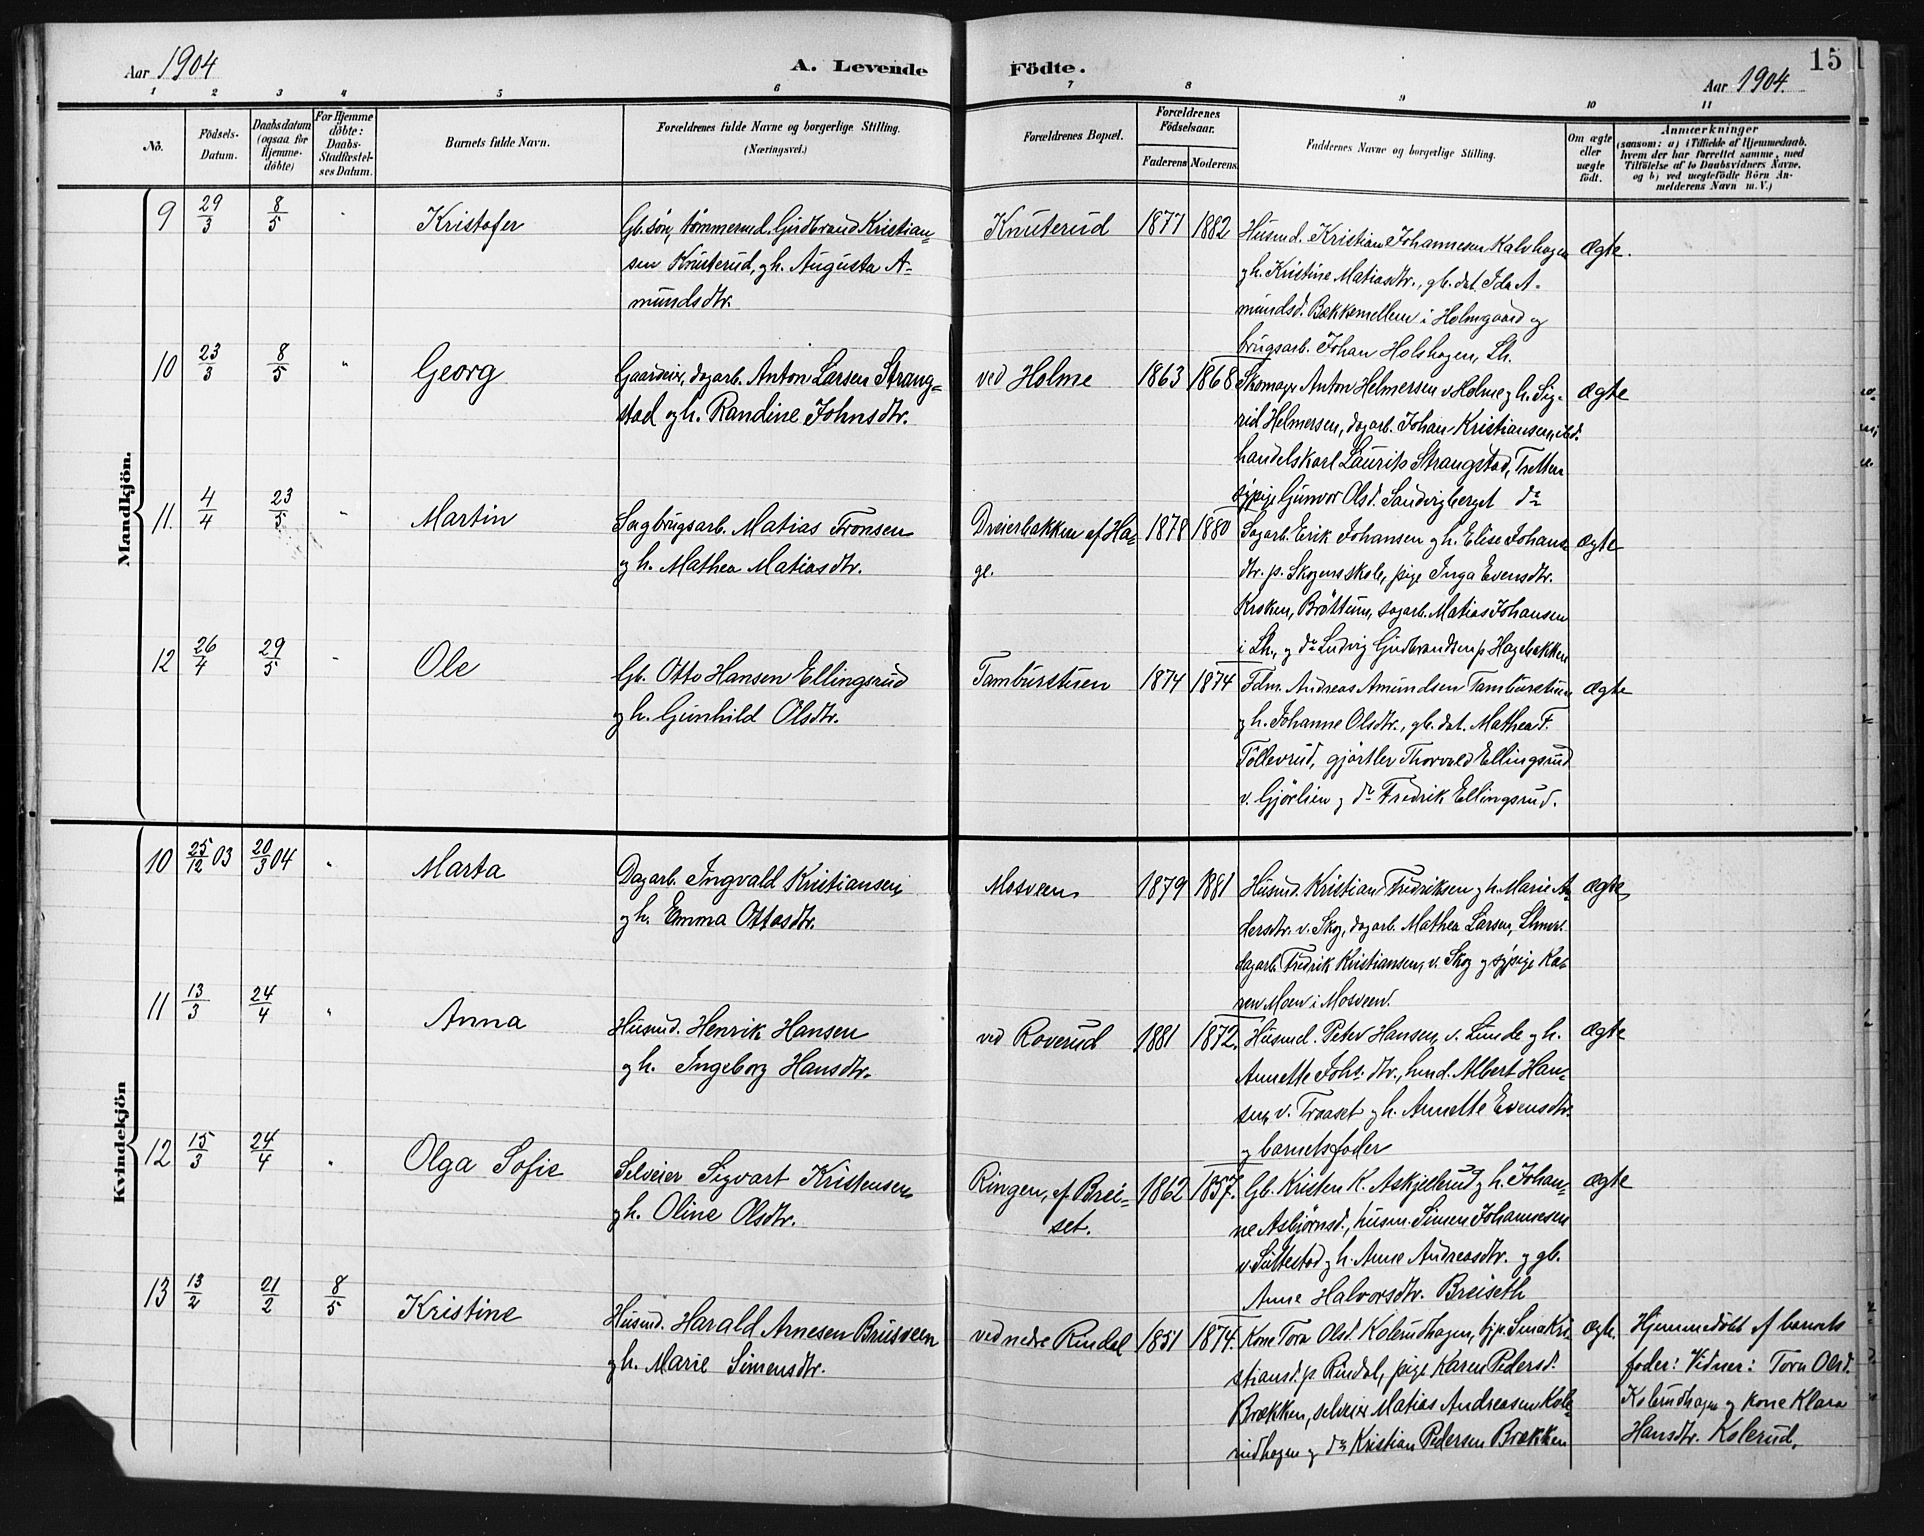 15
Aar 1904
A. Levende Födte.
Aar 1904.
1 2 3 4 5 6 7 8 9 10 11
No.
Födsels-Datum.
Daabsdatum (ogsaa for Hjemme-döbte)
For Hjemme döbte: Daabs-Stadfæstel-ses Datum.
Barnets fulde Navn.
Forældrenes fulde Navne og borgerlige Stilling. (Næringsvei.)
Forældrenes Bopæl.
Forældrenes Födselsaar.
Faderens Moderens
Faddernes Navne og borgerlige Stilling.
Om ægte eller uægte födt.
Anmærkninger
(saasom: a) i Tilfælde af Hjemmedaab,
hvem der har forrettet samme, med
Tilföielse af to Daabsvidners Navne,
og b) ved uægtefödte Börn An-
melderens Navn m. V.)
Mandkjön.
9 29/3 8/5 " Kristofer
Gb. sön, tömmermd. Gudbrand Kristian-
sen Knuterud, g h. Augusta A-
mundsdtr.
Knuterud 1877 1882
Husmd. Kristian Johannesen Kalvhagen
g h. Kristine Matiasdtr., gb. dat. Ida A-
mundsd. Bakkemellem i Holmgaard og
brugsarb. Johan Holshagen, Lh.
ægte.
10 23/3 8/5 " Georg
Gaardeier, dagarb. Anton Larsen Strang-
stad og h. Randine Johnsdtr.
ved Holme 1863 1868
Skomagr. Anton Helmersen v. Holme g h. Sig-
rid Helmersen, dagarb. Johan Kristiansen, ibd.
handelskarl Laurits Strangstad, Tretten
sypige Gunvor Olsd. Sandvigberget do
ægte
11. 4/4 23/5 " Martin
Sagbrugsarb. Matias Tronsen
og h. Mathea Matiasdtr.
Dreierbakken af Ha-
ge.
1878 1880
Sagarb. Erik Johansen g h. Elise Johans-
dtr. p. Skogens skole, pige Inga Evensdtr.
Kroken, Bröttum, sagarb. Matias Johansen
i Lh., g do Ludvig Gudbrandsen p. Hagebakken
ægte
12 26/4 29/5 " Ole
Gb. Otto Hansen Ellingsrud
og h. Gunhild Olsdtr.
Tamburstuen 1874 1874
Fdm. Andreas Amundsen Tamburstuen
g h. Johanne Olsdtr., gb. dat. Mathea F.
Töllevrud, gjörtler Thorvald Ellingsrud
v. Gjörlien g do Fredrik Ellingsrud.
ægte
Kvindekjön
10 25/12 03 20/3 04 " Marta
Dagarb. Ingvald Kristiansen,
og h. Emma Ottosdtr.
Mosveen 1879 1881
Husmd. Kristian Fredriksen g h. Marie An-
dersdtr. v. Skog, dagarb. Mathea Larsen, Lhmr.
dagarb. Fredrik Kristiansen, v. Skog g sypige Ka-
ren Moen i Mosveen.
ægte
11 13/3 24/4 " Anna
Husmd. Henrik Hansen
og h. Ingeborg Hansdtr.
ved Roverud 1881 1872.
Husmd. Peter Hansen, v. Lunde g h.
Annette Johs. dtr., hmd. Albert Han-
sen, v. Traaset g h. Annette Evensdtr.
g barnets fader
ægte
12 15/3 24/4 " Olga Sofie
Selveier Sigvart Kristensen,
g h. Oline Olsdtr.
Ringen, af Brei-
set.
1862 1857.
Gb. Kristen K. Askjellerud g h. Johan-
ne Asbjörnsd., husm. Simen Johannesen
v. Suttestad g h. Anne Andreasdtr. g gb.
Anne Halvorsdtr. Breiseth
ægte
13 13/2 21/2 8/5 Kristine
Husmd. Harald Arnesen Brusveen
g h. Marie Simensdtr.
ved nedre Rindal 1851 1874.
Kone Tora Olsd. Kolerudhagen, tjp. Lina Kri-
stiansd. p. Rindal, pige Karen Pedersd.
Brækken, selveier Matias Andreasen Kole-
rudhagen g do Kristian Pedersen Brækken
ægte.
Hjemmedöbt af barnets
fader: Vidner: Tora Olsd.
Kolerudhagen g kone Klara
Hansdtr. Kolerud.